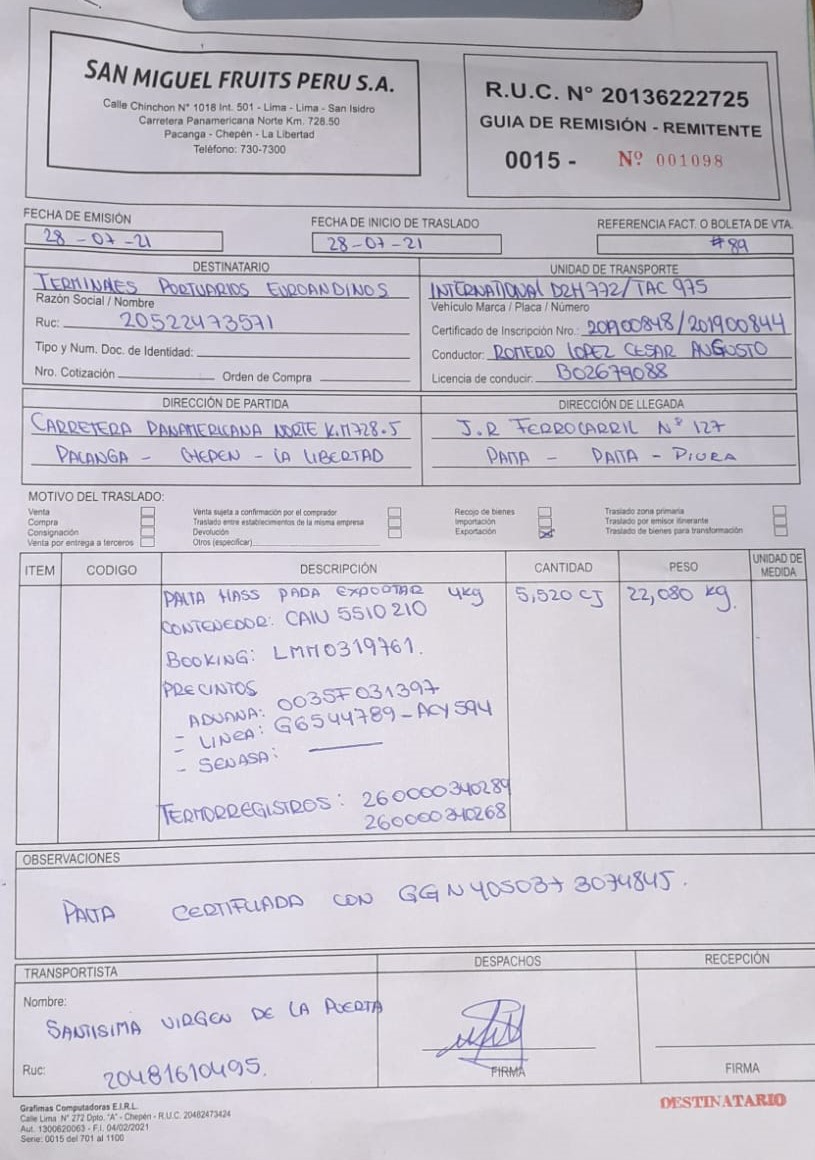 SAN MIGUEL FRUITS PERU S.A.
Calle Chinchon N° 1018 Int. 501 - Lima - Lima - San Isidro
Carretera Panamericana Norte Km. 728.50
Pacanga - Chepén - La Libertad
Teléfono: 730-7300
R.U.C. N° 20136222725
GUIA DE REMISIÓN - REMITENTE
0015 - Nº 001098
FECHA DE EMISIÓN
28-07-21
FECHA DE INICIO DE TRASLADO
28-07-21
REFERENCIA FACT. O BOLETA DE VTA.
#89
DESTINATARIO
TERMINALES PORTUARIOS EUROANDINOS
Razón Social / Nombre
Ruc: 20522473571
Tipo y Num. Doc. de Identidad:
Nro. Cotización Orden de Compra
UNIDAD DE TRANSPORTE
INTERNATIONAL D2H 772/TAC 975
Vehículo Marca / Placa / Número
Certificado de Inscripción Nro.: 201900848/201900844
Conductor: ROMERO LOPEZ CESAR AUGUSTO
Licencia de conducir. B02679088
DIRECCIÓN DE PARTIDA
CARRETERA PANAMERICANA NORTE K.M 728.5
PACANGA - CHEPEN - LA LIBERTAD
DIRECCIÓN DE LLEGADA
J.R FERROCARRIL N° 127
PAITA - PAITA - PIURA
MOTIVO DEL TRASLADO:
Venta
Compra
Consignación
Venta por entrega a terceros
Venta sujeta a confirmación por el comprador
Traslado entre establecimientos de la misma empresa
Devolución
Otros (especificar)
Recojo de bienes
Importación
Exportación
Traslado zona primaria
Traslado por emisor itinerante
Traslado de bienes para transformación
ITEM CODIGO DESCRIPCIÓN CANTIDAD PESO UNIDAD DE MEDIDA
PALTA HASS PARA EXPORTAR 4kg 5,520 CJ 22,080 kg.
CONTENEDOR: CAIU 5510210
BOOKING: LMM0319761.
PRECINTOS
ADUANA: 0035F031397
- LINEA: G6544789-ACY594
- SENASA:
TERMORREGISTROS: 260000340289
260000340268
OBSERVACIONES
PALTA CERTIFICADA CON GGN 4050373074845.
TRANSPORTISTA
Nombre:
SANTISIMA VIRGEN DE LA PUERTA
Ruc: 20481610495.
DESPACHOS
FIRMA
RECEPCIÓN
FIRMA
Grafimas Computadoras E.I.R.L.
Calle Lima N° 272 Dpto. "A" - Chepén - R.U.C. 20482473424
Aut. 1300620063 - F.I. 04/02/2021
Serie: 0015 del 701 al 1100
DESTINATARIO